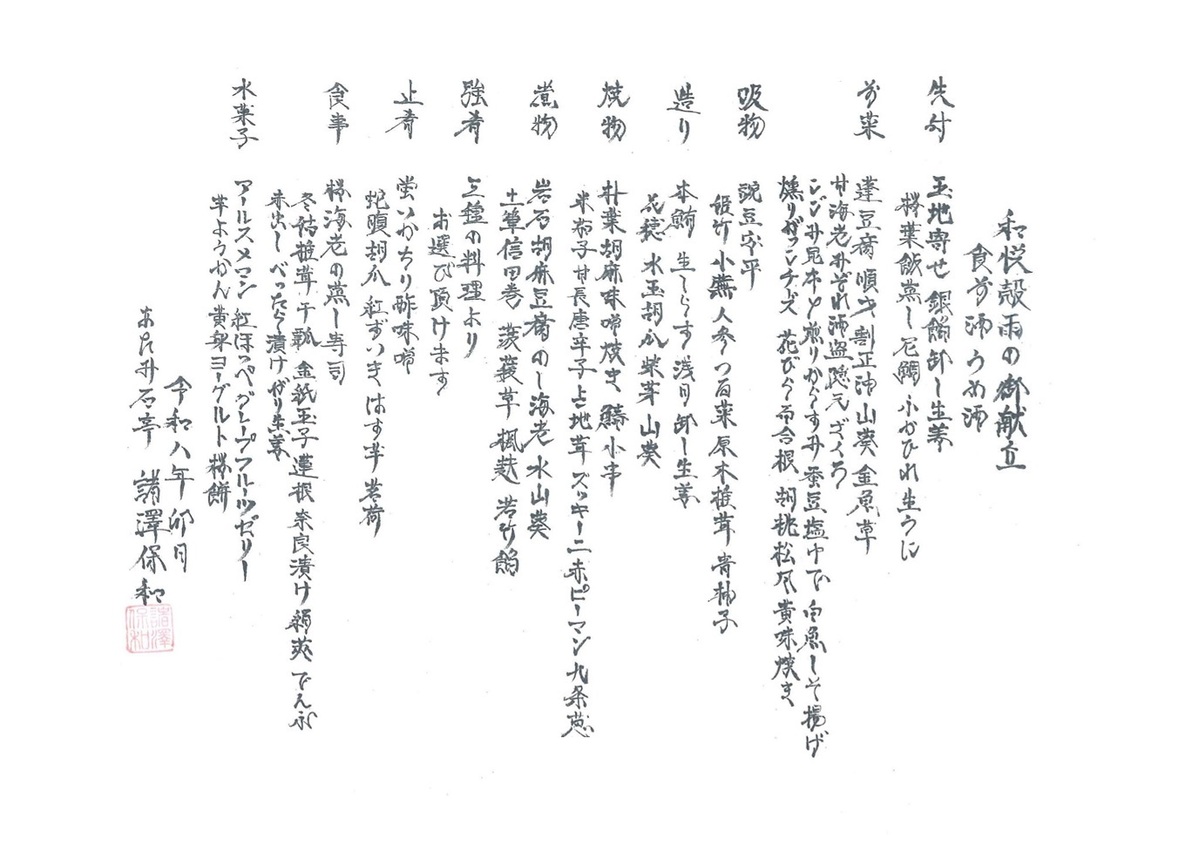 和悦 穀雨の御献立
食前酒 うめ酒
先付
玉地寄せ 銀餡 卸し生姜
桜葉飯蒸し 尼鯛 ふかひれ 生うに
前菜
蓬豆腐 順才 割正油 山葵 金魚草
甘海老みぞれ酒盗 隠元ざくろ
こごみ昆布〆煎りからすみ 蚕豆塩ゆで 白魚しそ揚げ
燻りがっこチーズ 花びら百合根 胡桃松風 黄味焼き
吸物
豌豆 宇平
姫竹 小蕪 人参 つる菜 原木椎茸 青柚子
造り
本鮪 生しらす 浅月 卸し生姜
花穂 水玉胡瓜 紫芽 山葵
焼物
朴葉胡麻味噌焼き 鰆 小串
米茄子 甘長唐辛子 占地茸 ズッキーニ 赤ピーマン 九条葱
煮物
岩石胡麻豆腐 のし海老 水山葵
土筆信田巻 菠薐草 楓麸 若竹餡
強肴
三種の料理より
お選び頂けます
止肴
蛍いか ちり酢味噌
蛇腹胡瓜 紅ずいき はす芋 茗荷
食事
桜海老の蒸し寿司
冬菇椎茸 干瓢 金糸玉子 蓮根 奈良漬け 絹莢 でんぶ
赤出し べったら漬け がり生姜
水菓子
アールスメロン 紅ほっぺ グレープフルーツゼリー
芋ようかん 黄粉ヨーグルト 桜餅
令和八年 卯月
石亭 諸澤保和
諸澤保和